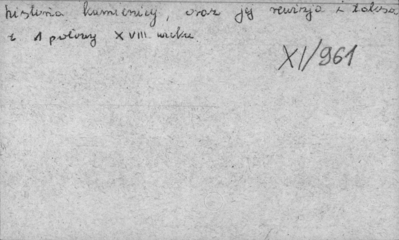 historia kamienicy, oraz jej rewizja i
z 1 połowy XVIII wieku
XI/961